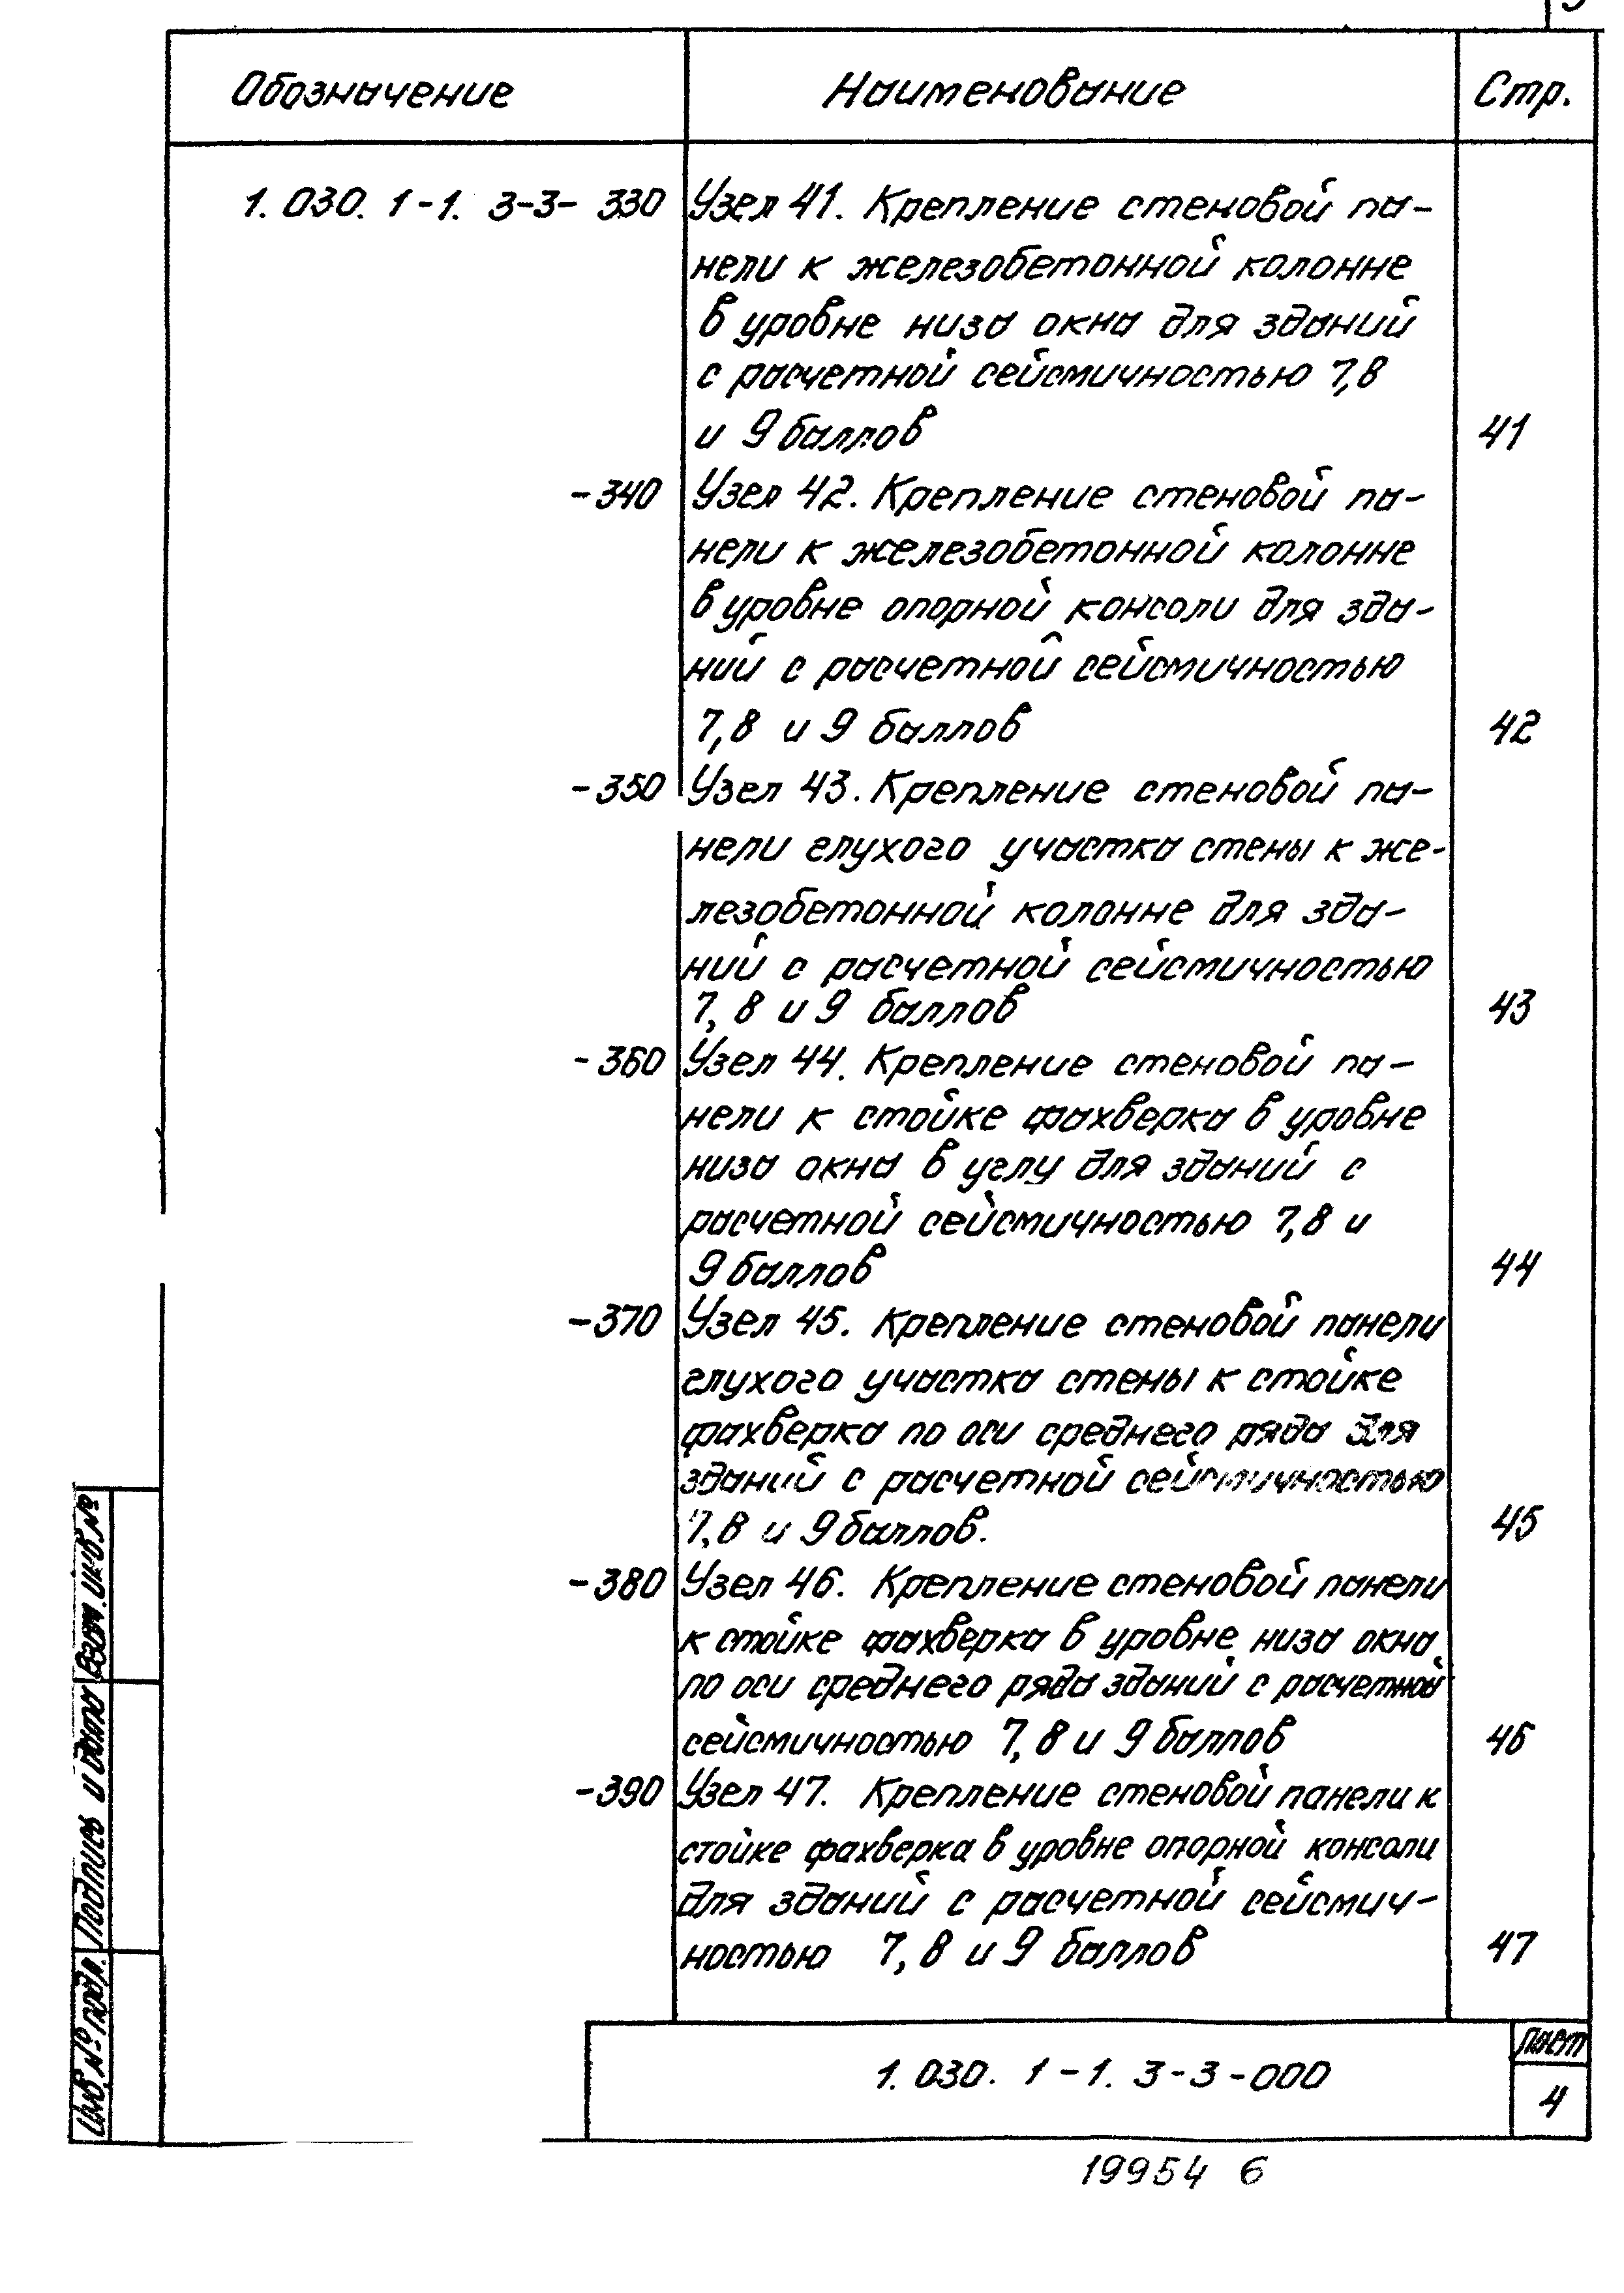 Обозначение Наименование Стр.
1.030.1-1.3-3-330 Узел 41. Крепление стеновой па-
нели к железобетонной колонне
в уровне низа окна для зданий
с расчетной сейсмичностью 7,8
и 9 баллов 41
-340 Узел 42. Крепление стеновой па-
нели к железобетонной колонне
в уровне опорной консоли для зда-
ний с расчетной сейсмичностью
7,8 и 9 баллов 42
-350 Узел 43. Крепление стеновой па-
нели глухого участка стены к же-
лезобетонной колонне для зда-
ний с расчетной сейсмичностью
7,8 и 9 баллов 43
-360 Узел 44. Крепление стеновой па-
нели к стойке фахверка в уровне
низа окна в углу для зданий с
расчетной сейсмичностью 7,8 и
9 баллов 44
-370 Узел 45. Крепление стеновой панели
глухого участка стены к стойке
фахверка по оси среднего ряда для
зданий с расчетной сейсмичностью
7,8 и 9 баллов. 45
-380 Узел 46. Крепление стеновой панели
к стойке фахверка в уровне низа окна
по оси среднего ряда зданий с расчетной
сейсмичностью 7,8 и 9 баллов 46
-390 Узел 47. Крепление стеновой панели к
стойке фахверка в уровне опорной консоли
для зданий с расчетной сейсмич-
ностью 7,8 и 9 баллов 47
Взам. инв. №
Подпись и дата
Инв. № подл.
1.030.1-1.3-3-000
Лист
4
19954 6